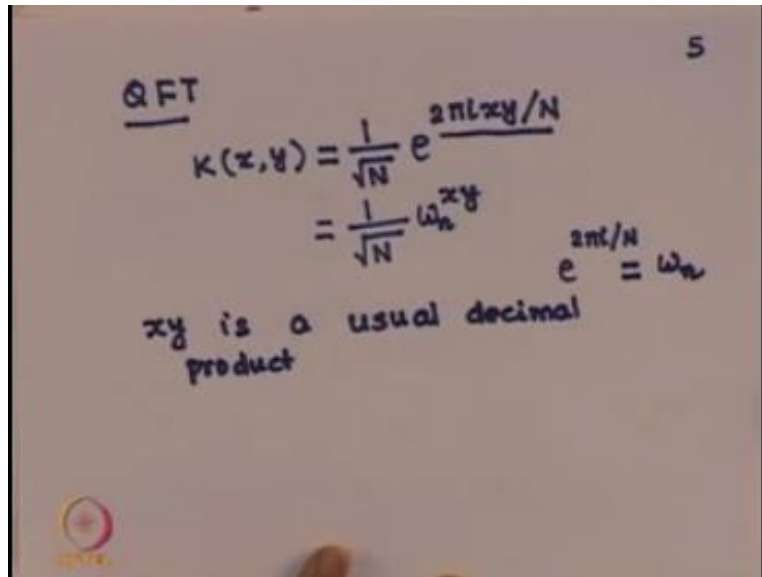 5
QFT
K(x,y) = 1/√N e^{2πixy/N}
= 1/√N ω_n^{xy}
e^{2πi/N} = ω_n
xy is a usual decimal
product